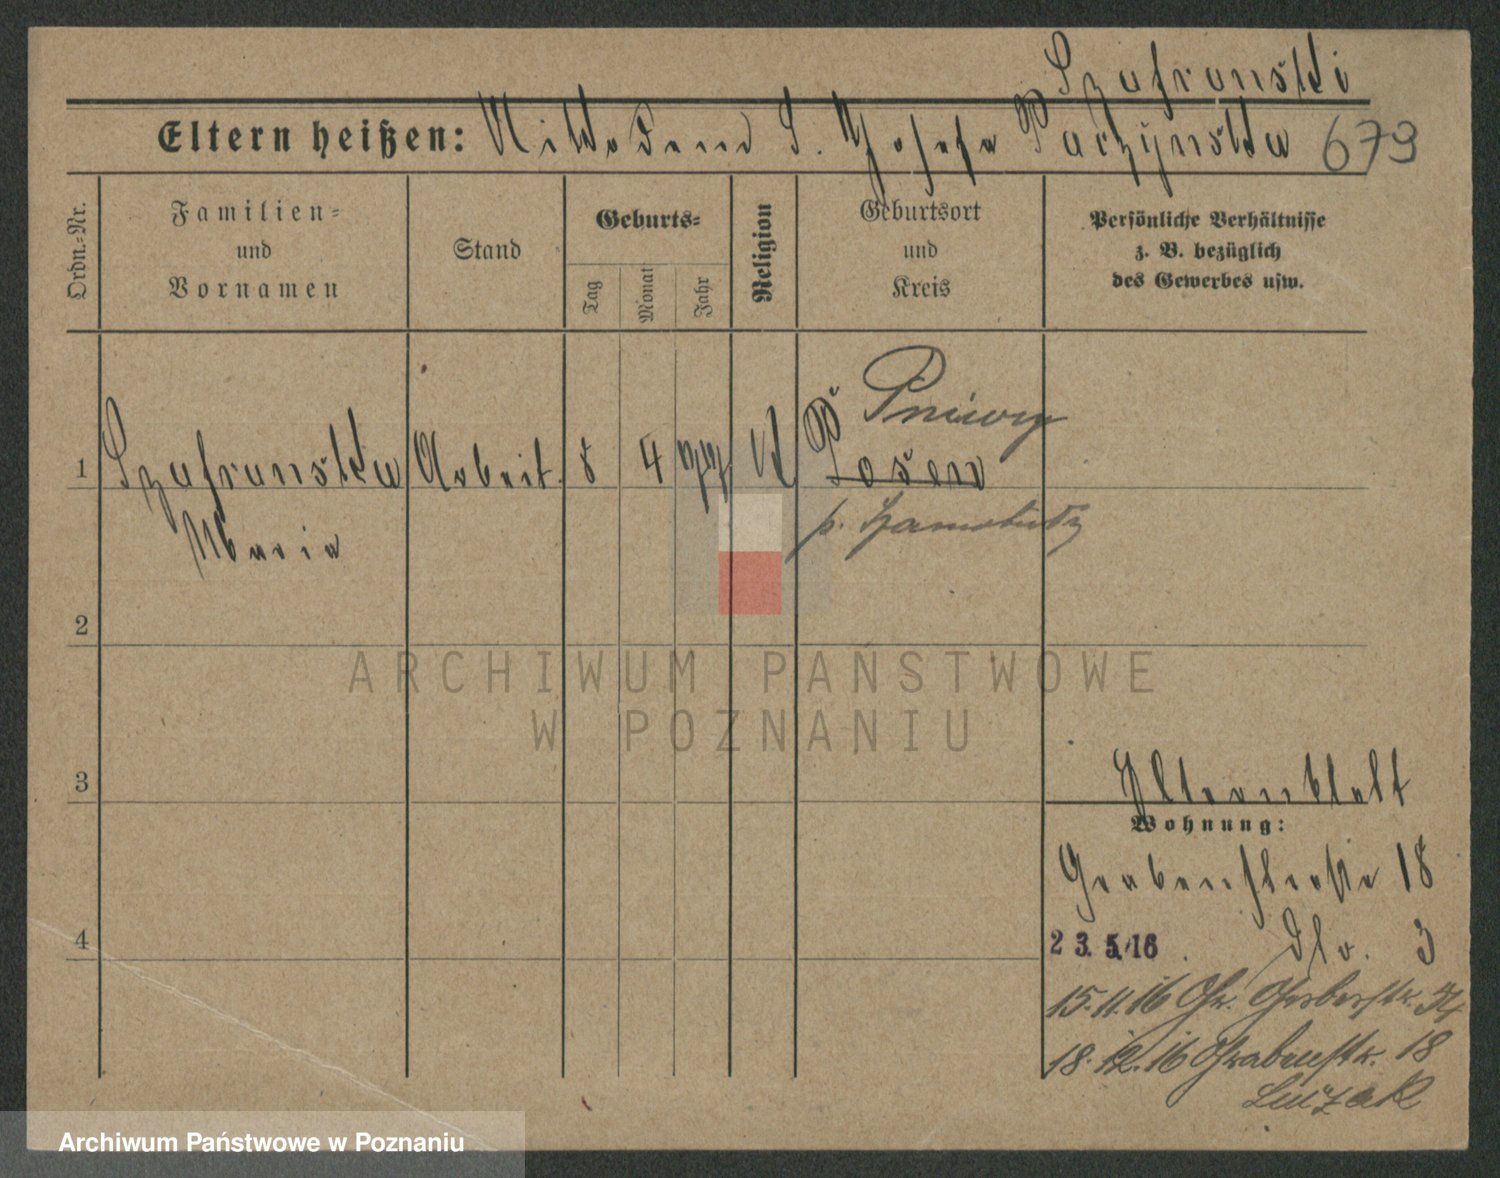 Szafranski
Eltern heißen: Nikodem u. Josefa Paczynska 679
Ordn.-Nr.
Familien-
und
Vornamen
Stand
Geburts-
Tag
Monat
Jahr
Religion
Geburtsort
und
Kreis
Persönliche Verhältnisse
z. B. bezüglich
des Gewerbes usw.
Pniewy
1 Szafranska Arbeit. 8 4 99 k Posen
p. Szamotuły
Maria
2
ARCHIWUM PAŃSTWOWE
W POZNANIU
3
Elternblatt
Wohnung:
Grabenstraße 18
4
23.5.16 3
15.11.16 Gr. Gerberstr. 34
18.12.16 Grabenstr. 18
Luczak
Archiwum Państwowe w Poznaniu